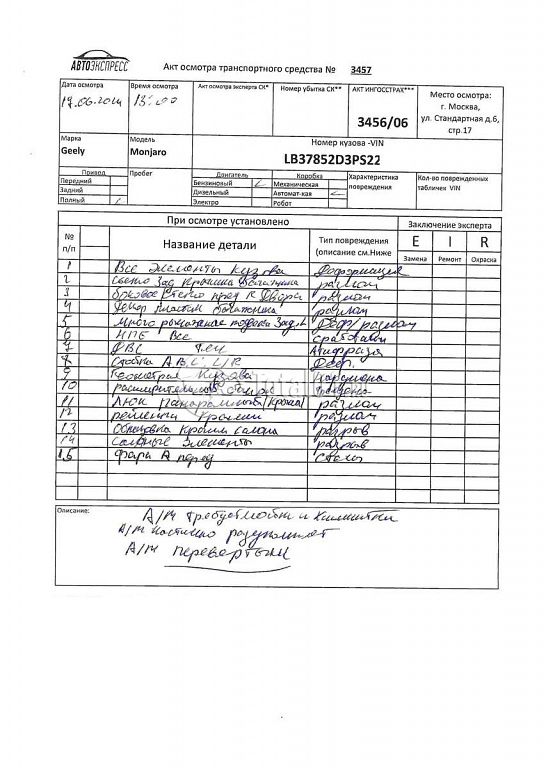 АВТОЭКСПРЕСС
Акт осмотра транспортного средства № 3457
Дата осмотра
Время осмотра 13:00
Акт осмотра эксперта СК*
Номер убытка СК**
АКТ ИНГОССТРАХ***
3456/06
Место осмотра:
г. Москва,
ул. Стандартная д.6,
стр.17
Марка
Geely
Модель
Monjaro
Номер кузова -VIN
LB37852D3PS22
Привод
Передний
Задний
Полный
Пробег
Двигатель
Бензиновый
Дизельный
Электро
Коробка
Механическая
Автомат-кая
Робот
Характеристика повреждения
Кол-во поврежденных табличек VIN
При осмотре установлено
Заключение эксперта
№ п/п
Название детали
Тип повреждения (описание см.Ниже
E I R
Замена Ремонт Окраска
1 Все элементы кузова Деформация
2 Зад разлом
3 разлом
4 пластик разлом
5 Зад Деф/разлом
6 НПБ Все
7 ДВС
8 Стойка A B C L/R Деф.
9 Геометрия кузова
10 Расширительный
11 Люк Панорамный (Крыша) разлом
12 рейлинги Крыши разлом
13 Обшивка Крыши салона разрыв
14 элементы разрыв
15 Фара перед
Описание:
А/м Требует Мойки и Химчистки
А/м частично разукомплект
А/м перевертыш